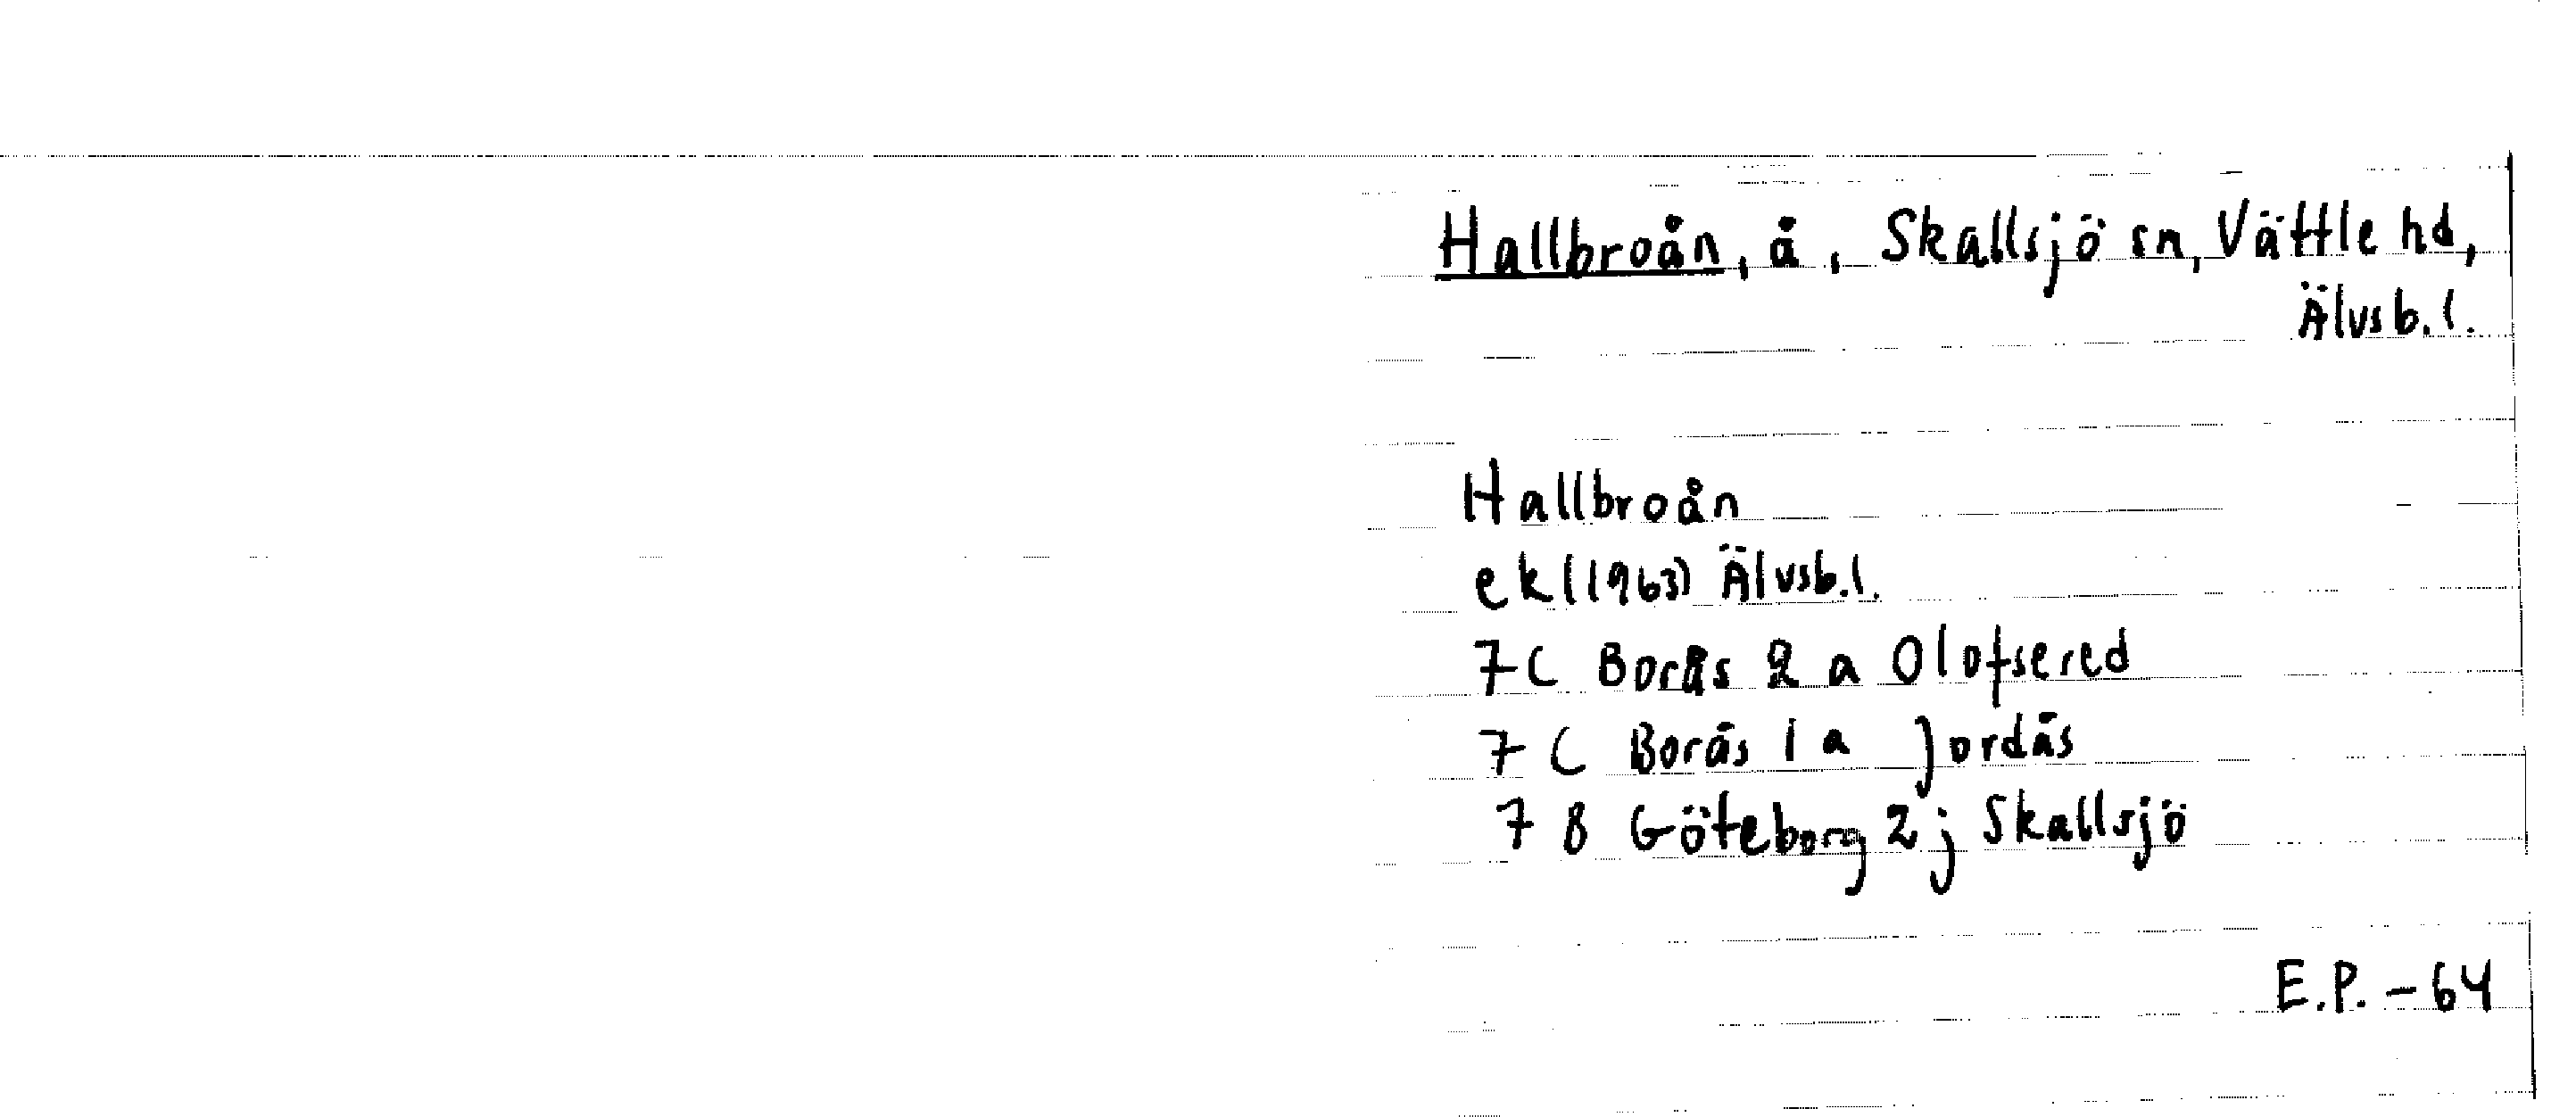 Hallbroån, å, Skallsjö sn, Vättle hd,
Älvsb.l.
Hallbroån
ek(1963) Älvsb.l.
7C Borås 2 a Olofsered
7C Borås 1 a Jordås
7B Göteborg 2j Skallsjö
E.P. - 64